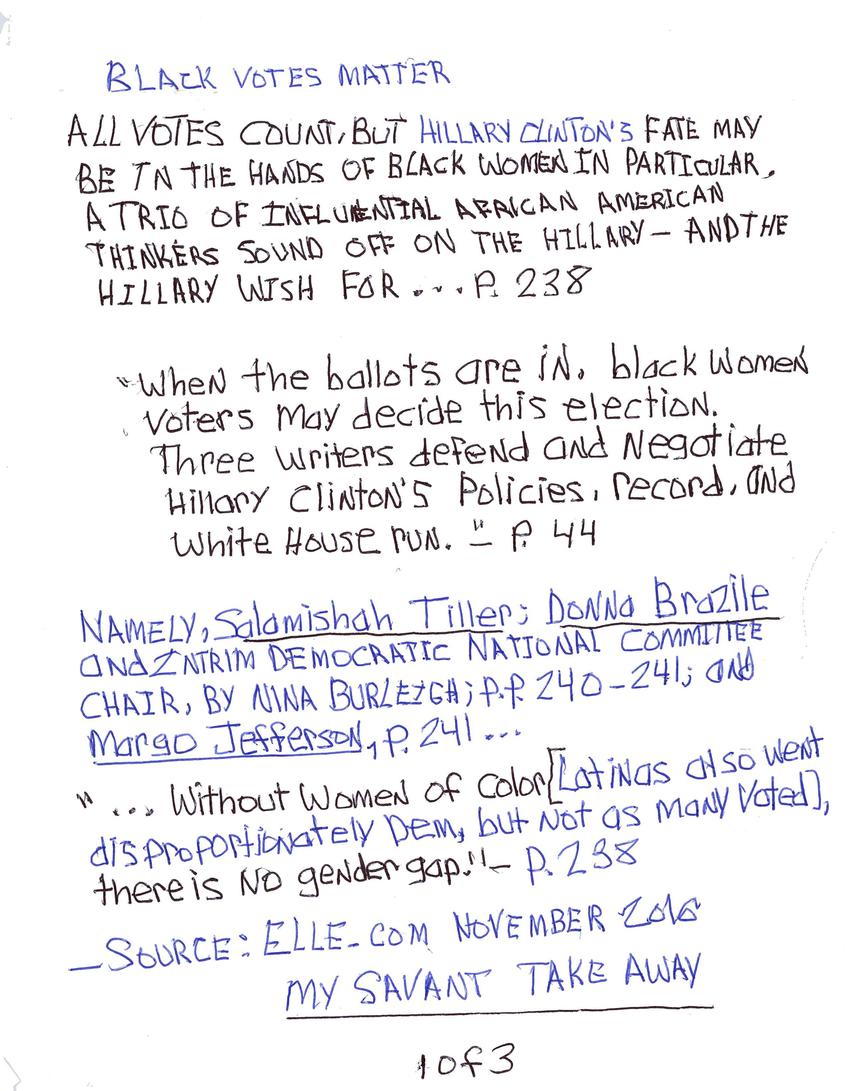 BLACK VOTES MATTER
ALL VOTES COUNT, BUT HILLARY CLINTON'S FATE MAY
BE IN THE HANDS OF BLACK WOMEN IN PARTICULAR.
A TRIO OF INFLUENTIAL AFRICAN AMERICAN
THINKERS SOUND OFF ON THE HILLARY — AND THE
HILLARY WISH FOR ... P. 238
"When the ballots are IN, black Women
Voters May decide this election.
Three Writers defend and Negotiate
Hillary Clinton's Policies, record, and
White House run." – P. 44
NAMELY, Salamishah Tiller; Donna Brazile
and INTRIM DEMOCRATIC NATIONAL COMMITTEE
CHAIR, BY NINA BURLEIGH; P.P. 240-241; and
Margo Jefferson, P. 241 ...
"... Without Women of Color [Latinas also went
disproportionately Dem, but Not as Many Voted],
there is No gender gap." – P. 238
— SOURCE: ELLE.COM NOVEMBER 2016
MY SAVANT TAKE AWAY
1 of 3